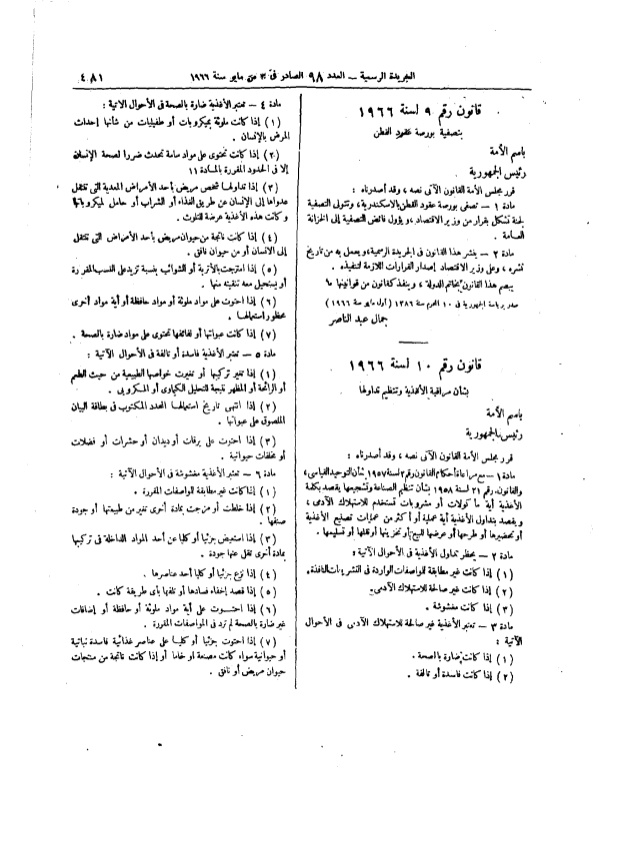 الجريدة الرسمية – العدد ٩٨ الصادر فى ٣ من مايو سنة ١٩٦٦
٤٨١
قانون رقم ٩ لسنة ١٩٦٦
بتصفية بورصة عقود القطن
باسم الأمة
رئيس الجمهورية
قرر مجلس الأمة القانون الآتى نصه ، وقد أصدرناه :
مادة ١ – تصفى بورصة عقود القطن بالإسكندرية، وتتولى التصفية
لجنة تشكل بقرار من وزير الاقتصاد، ويؤول فائض التصفية إلى الخزانة
العامة .
مادة ٢ – ينشر هذا القانون فى الجريدة الرسمية، ويعمل به من تاريخ
نشره ، وعلى وزير الاقتصاد إصدار القرارات اللازمة لتنفيذه .
يبصم هذا القانون بخاتم الدولة ، وينفذ كقانون من قوانينها ما
صدر برياسة الجمهورية فى ١٠ المحرم سنة ١٣٨٦ (أول مايو سنة ١٩٦٦)
جمال عبد الناصر
قانون رقم ١٠ لسنة ١٩٦٦
بشأن مراقبة الأغذية وتنظيم تداولها
باسم الأمة
رئيس الجمهورية
قرر مجلس الأمة القانون الآتى نصه ، وقد أصدرناه :
مادة ١ – مع مراعاة أحكام القانون رقم ٢ لسنة ١٩٥٧ بشأن التوحيد القياسى،
والقانون رقم ٢١ لسنة ١٩٥٨ بشأن تنظيم الصناعة وتشجيعها يقصد بكلمة
الأغذية أية مأكولات أو مشروبات تستخدم للاستهلاك الآدمى ،
ويقصد بتداول الأغذية أية عملية أو أكثر من عمليات تصنيع الأغذية
أو تحضيرها أو طرحها أو عرضها للبيع أو تخزينها أو نقلها أو تسليمها .
مادة ٢ – يحظر تداول الأغذية فى الأحوال الآتية :
(١) إذا كانت غير مطابقة للمواصفات الواردة فى التشريعات النافذة.
(٢) إذا كانت غير صالحة للاستهلاك الآدمى.
(٣) إذا كانت مغشوشة .
مادة ٣ – تعتبر الأغذية غير صالحة للاستهلاك الآدمى فى الأحوال
الآتية :
(١) إذا كانت ضارة بالصحة .
(٢) إذا كانت فاسدة أو تالفة .
مادة ٤ – تعتبر الأغذية ضارة بالصحة فى الأحوال الاتية :
(١) إذا كانت ملوثة بميكروبات أو طفيليات من شأنها إحداث
المرض بالإنسان .
(٢) إذا كانت تحتوى على مواد سامة تحدث ضررا لصحة الإنسان
إلا فى الحدود المقررة بالمادة ١١
(٣) إذا تداولها شخص مريض بأحد الأمراض المعدية التى تنتقل
عدواها إلى الإنسان عن طريق الغذاء أو الشراب أو حامل لميكروباتها
وكانت هذه الأغذية عرضة للتلوث .
(٤) إذا كانت ناتجة من حيوان مريض بأحد الأمراض التى تنتقل
إلى الانسان أو من حيوان نافق .
(٥) إذا امتزجت بالأتربة أو الشوائب بنسبة تزيد على النسب المقررة
أو يستحيل معه تنقيته منها .
(٦) إذا احتوت على مواد ملونة أو مواد حافظة أو أية مواد أخرى
محظور استعمالها .
(٧) إذا كانت عبواتها أو لفائفها تحتوى على مواد ضارة بالصحة .
مادة ٥ – تعتبر الأغذية فاسدة أو تالفة فى الأحوال الآتية :
(١) إذا تغير تركيبها أو تغيرت خواصها الطبيعية من حيث الطعم
أو الرائحة أو المظهر نتيجة للتحليل الكيماوى أو المكروبى .
(٢) إذا انتهى تاريخ استعمالها المحدد المكتوب فى بطاقة البيان
الملصوق على عبواتها .
(٣) إذا احتوت على يرقات أو ديدان أو حشرات أو فضلات
أو مخلفات حيوانية .
مادة ٦ – تعتبر الأغذية مغشوشة فى الأحوال الآتية :
(١) إذا كانت غير مطابقة للمواصفات المقررة .
(٢) إذا خلطت أو مزجت بمادة أخرى تغير من طبيعتها أو جودة
صنفها .
(٣) إذا استعيض جزئيا أو كليا عن أحد المواد الداخلة فى تركيبها
بمادة أخرى تقل عنها جودة .
(٤) إذا نزع جزئيا أو كليا أحد عناصرها .
(٥) إذا قصد إخفاء فسادها أو تلفها بأى طريقة كانت .
(٦) إذا احتوت على أية مواد ملونة أو حافظة أو إضافات
غير ضارة بالصحة لم ترد فى المواصفات المقررة .
(٧) إذا احتوت جزئيا أو كليا على عناصر غذائية فاسدة نباتية
أو حيوانية سواء كانت مصنعة أو خاما أو إذا كانت ناتجة من منتجات
حيوان مريض أو نافق .